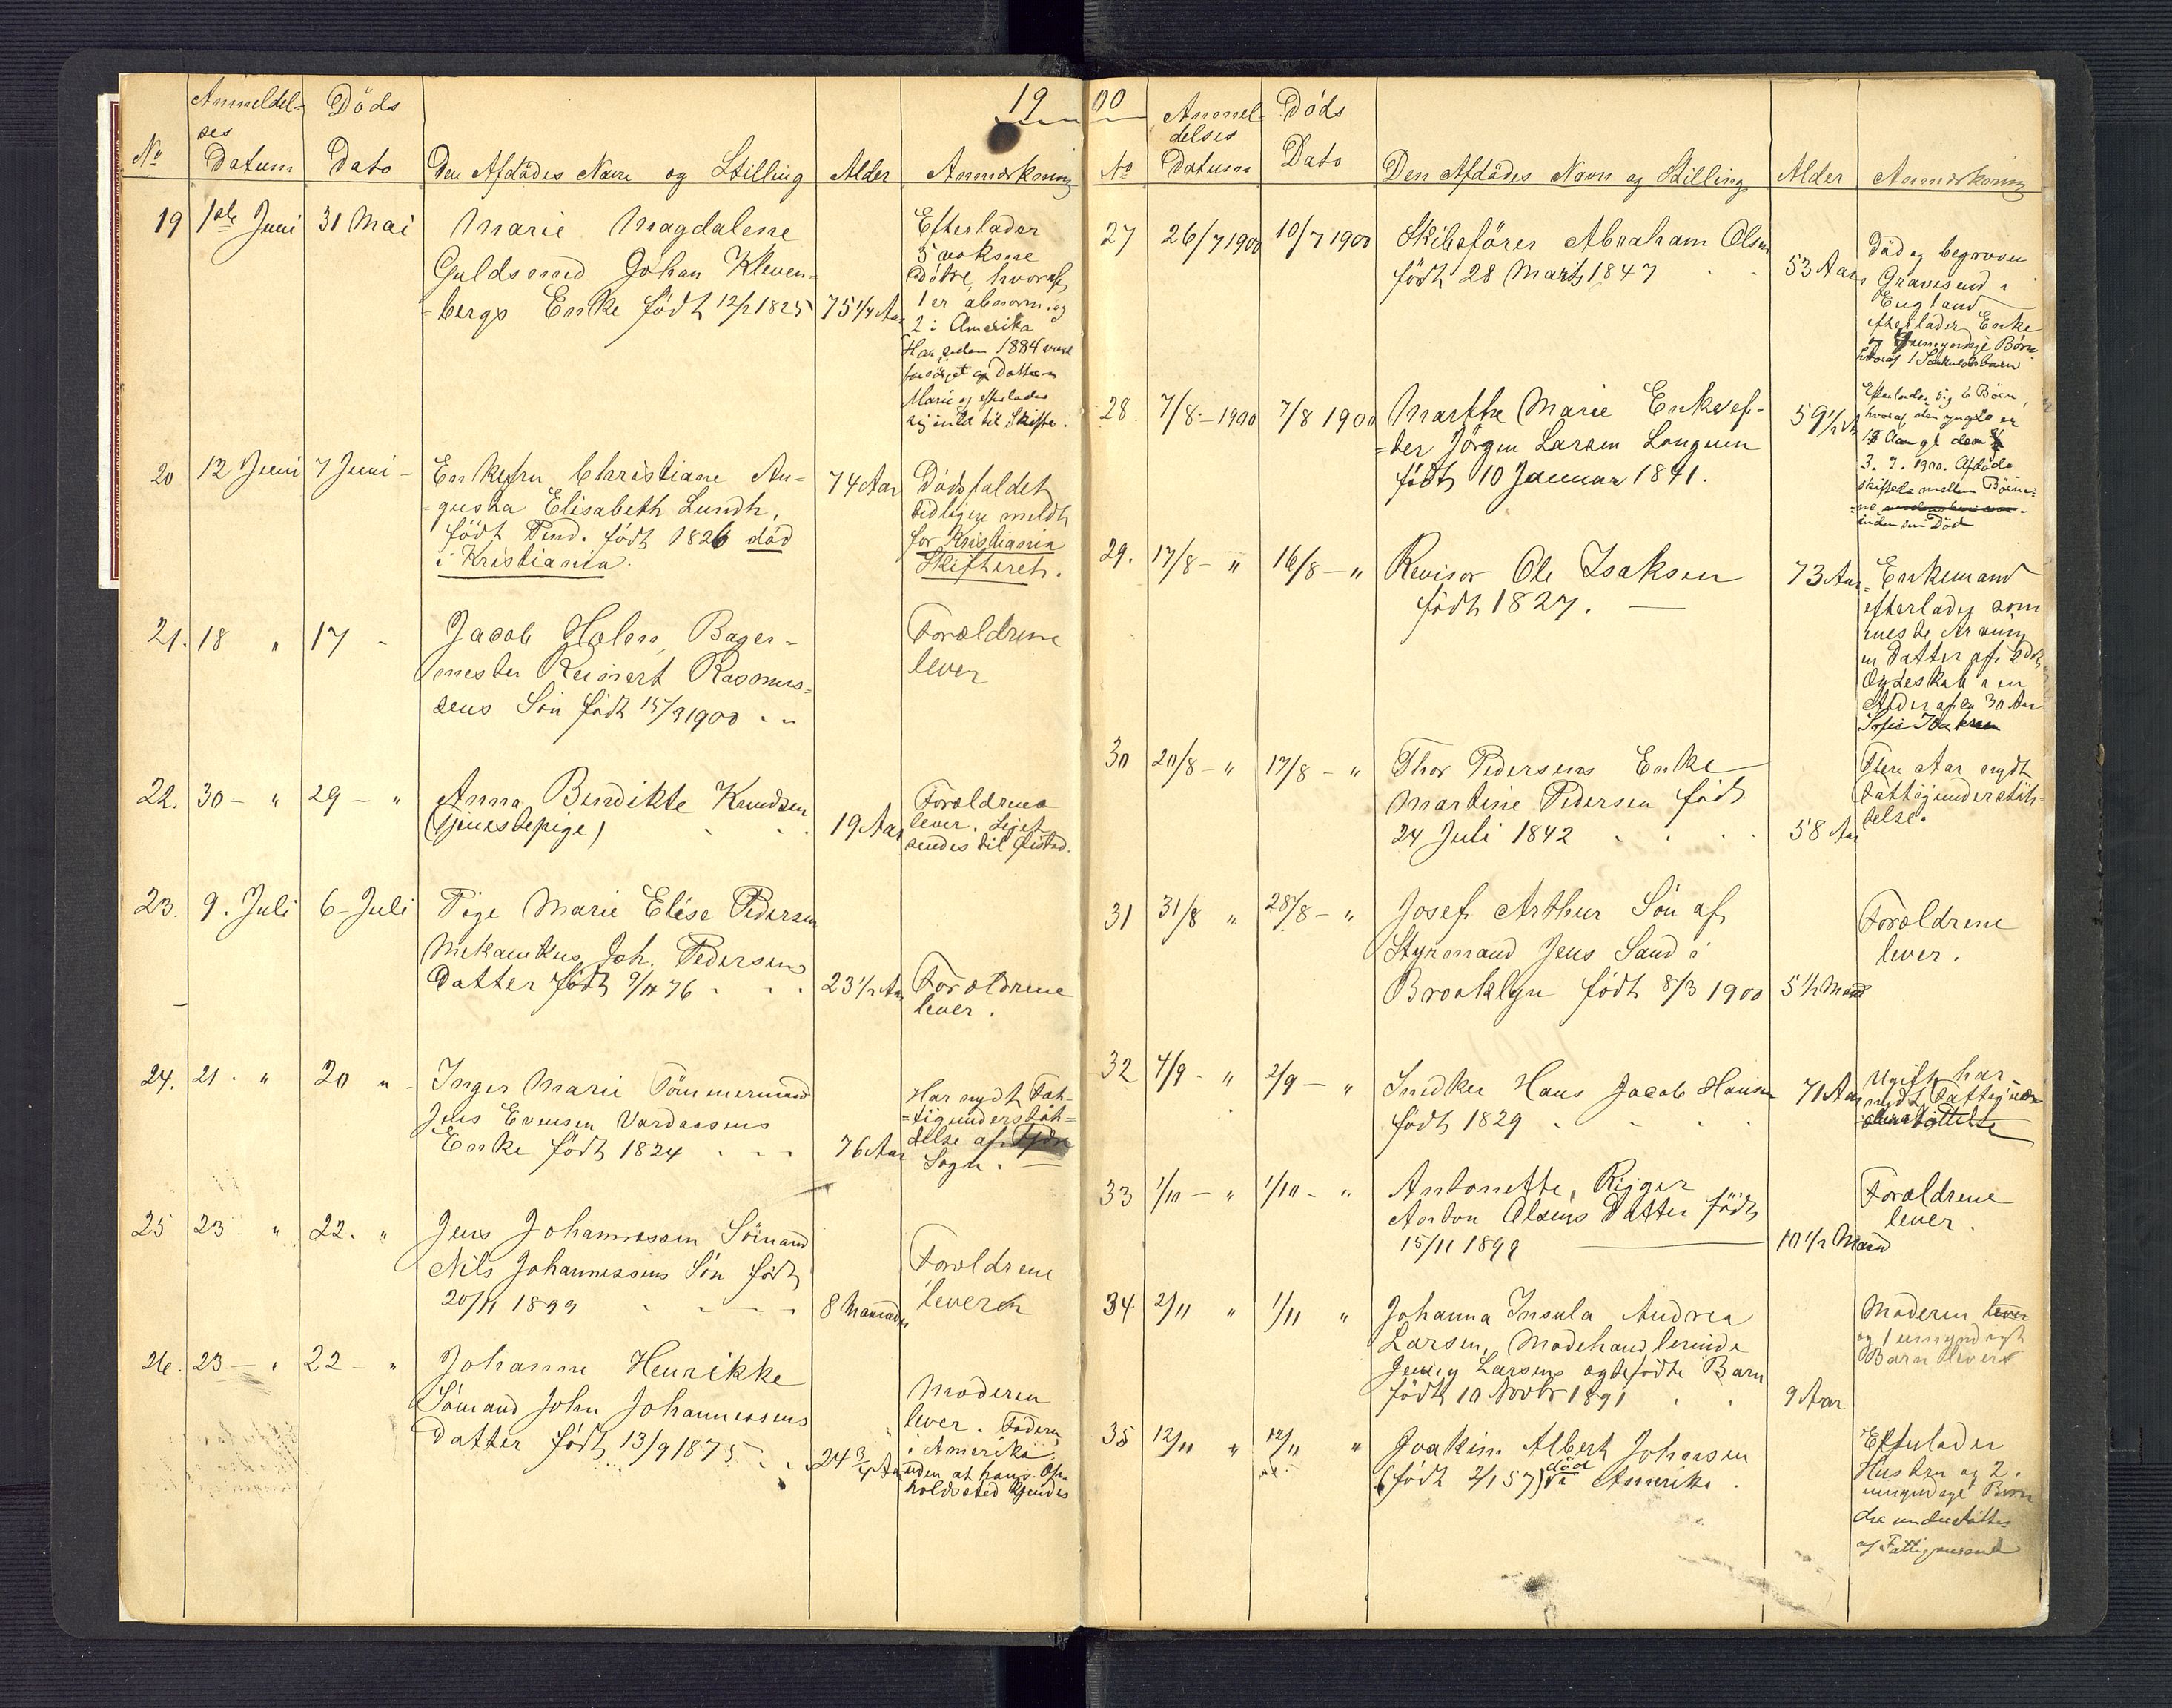 1900
No
Anmeldel-
ses
Datum
Döds
Dato
Den Afdödes Navn og Stilling
Alder
Anmærkning
19
1ste Juni
31 Mai
Marie Magdalene
Guldsmed Johan Kleven-
=bergs Enke födt 12/2 1825
75 1/4 Aar
Efterlader
5 voksne
Döttre, hvoraf
1 er abnorm. og
2 i Amerika
Har siden 1884 været
forsörget af Datteren
Marie og efterlader
sig intet til Skifte.
20
12 Juni
7 Juni -
Enkefru Christiane Au-
=gusta Elisabeth Lundh,
födt Find. födt 1826 död
i Kristiania.
74 Aar
Dödsfaldet
tidligere meldt
for Kristiania
Skifteret.
21.
18 "
17 -
Jacob Holm, Bager-
mester Reinert Rasmus-
sens Sön födt 15/3 1900
Forældrene
lever
22.
30 - "
29 - "
Anna Bendikte Knudsen
(Tjenestepige)
19 Aar
Forældrene
lever. Liget
sendes til
23.
9. Juli
6 - Juli
Pige Marie Elise Pedersen
Mekanikus Joh. Pedersens
Datter födt 9/11 76
23 1/2 Aar
Forældrene
lever.
24.
21 - "
20 "
Inger Marie Tömmermand
Jens Evensen Vardaasens
Enke födt 1824
76 Aar
Har nydt Fat-
=tigunderstöt-
telse af
Sogn.
25
23 - "
22. "
Jens Johannessen Sömand
Nils Johannessens Sön födt
20/11 1899
8 Maaneder
Forældrene
lever
26.
23 - "
22 - "
Johanne Henrikke
Sömand John Johannessens
Datter födt 13/9 1875
24 3/4 Aar
Moderen
lever. Faderen
i Amerika
uden at hans Op-
holdssted kjendes
No
Anmel-
delses
Datum
Döds
Dato
Den Afdödes Navn og Stilling
Alder
Anmærkning
27
26/7 1900
10/7 1900
Skibsförer Abraham Olsen
födt 28 Marts 1847
53 Aar
Död og begraven
Gravesend i
England
efterlader Enke
og umyndige Börn
hvoraf 1 Særkuldsbarn
28
7/8 - 1900
7/8 1900
Marthe Marie Enke ef-
=ter Jörgen Larsen Longum
födt 10 Januar 1841.
59 1/2
Efterlader sig 6 Börn,
hvoraf den yngste er
18 Aar gl. den
3. 9. 1900. Afdöde
skiftede mellem Börne-
=ne
inden sin Död
29.
17/8 - "
16/8 - "
Revisor Ole Isaksen
födt 1827.
73 Aar
Enkemand
efterlader som
eneste Arving
en Datter af 2det
Ægteskab i en
Alder af ca 30 Aar
Sofie Isaksen
30
20/8 - "
17/8 - "
Thor Pedersens Enke
Martine Pedersen födt
24 Juli 1842
58 Aar
Flere Aar nydt
Fattigunderstöt-
telse.
31
31/8 "
28/8 - "
Josef Arthur Sön af
Styrmand Jens Sand i
Brooklyn födt 8/3 1900
5 1/2 Maaned
Forældrene
lever.
32
4/9 - "
2/9 - "
Snedker Hans Jacob Hansen
födt 1829
71 Aar
Ugift, har
nydt Fattigun-
derstöttelse
33
1/10 - "
1/10 - "
Antonette, Rigger
Anton Olsens Datter födt
15/11 1899
10 1/2 Maaned
Forældrene
lever.
34
2/11 "
1/11 "
Johanna Insula Andrea
Larsen, Modehandlerinde
Jenny Larsens ægtefödte Barn
födt 10 Novbr 1891
9 Aar
Moderen lever
og 1 umyndigt
Barn lever
35
12/11 "
12/11 "
Joakim Albert Johansen
(födt 2/1 57) död i Amerika.
Efterlader
Hustru og 2
umyndige Börn
der understöttes
af Fattigvæsenet